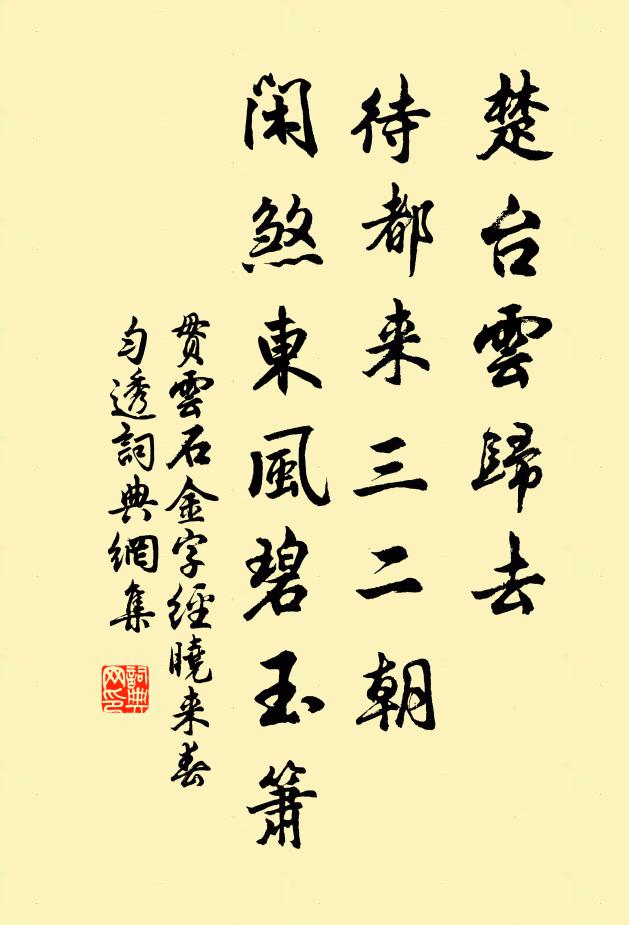 楚台雲歸去
待都来三二朝
闲煞東風碧玉簫
贯雲石金字經曉来春
匀透詞典網集
詞典
网印